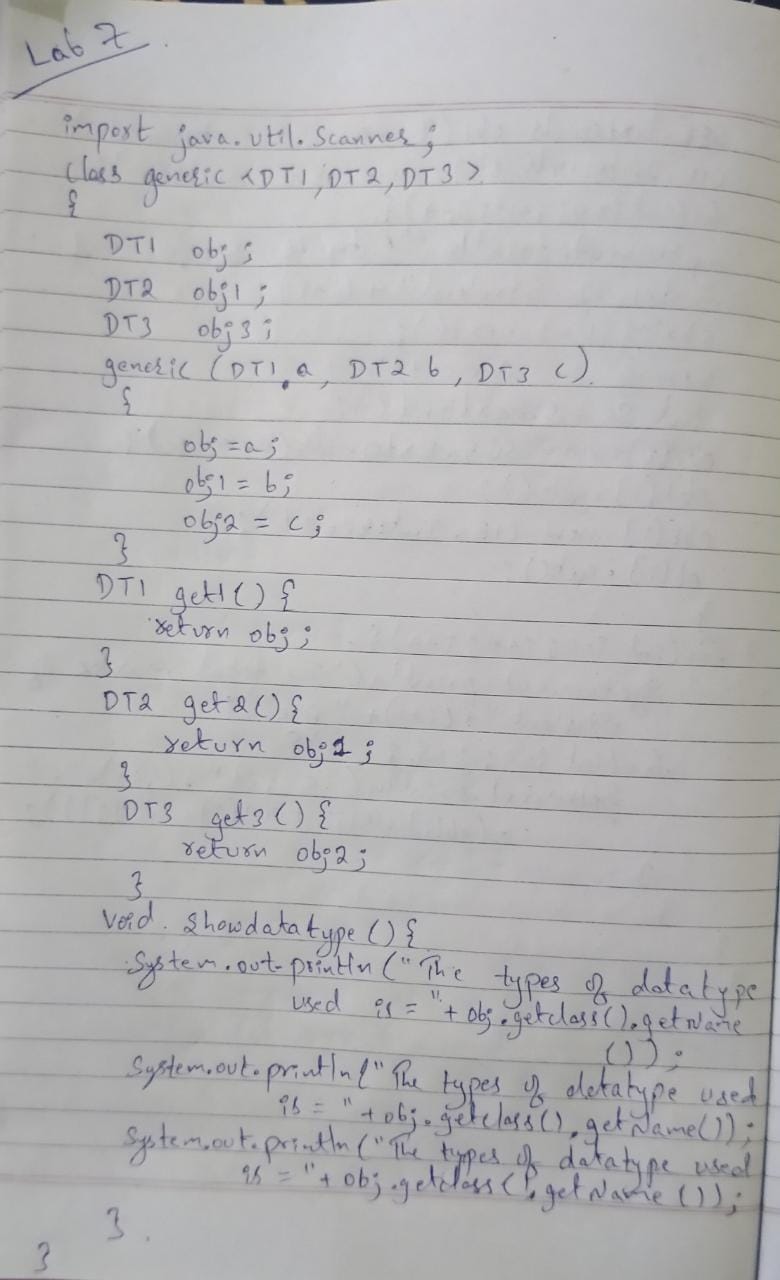 Lab 7
import java.util.Scanner;
Class generic <DT1, DT2, DT3>
{
DT1 obj;
DT2 obj1;
DT3 obj3;
generic (DT1 a, DT2 b, DT3 c)
{
obj = a;
obj1 = b;
obj2 = c;
}
DT1 get1() {
return obj;
}
DT2 get2() {
return obj1;
}
DT3 get3() {
return obj2;
}
Void Showdatatype () {
System.out.println ("The types of datatype
used is = "+ obj.getclass().getName
());
System.out.println ("The types of detatype used
is = "+obj.getclass().getName());
System.out.println ("The types of datatype used
is = "+ obj.getclass().getName ());
}.
}